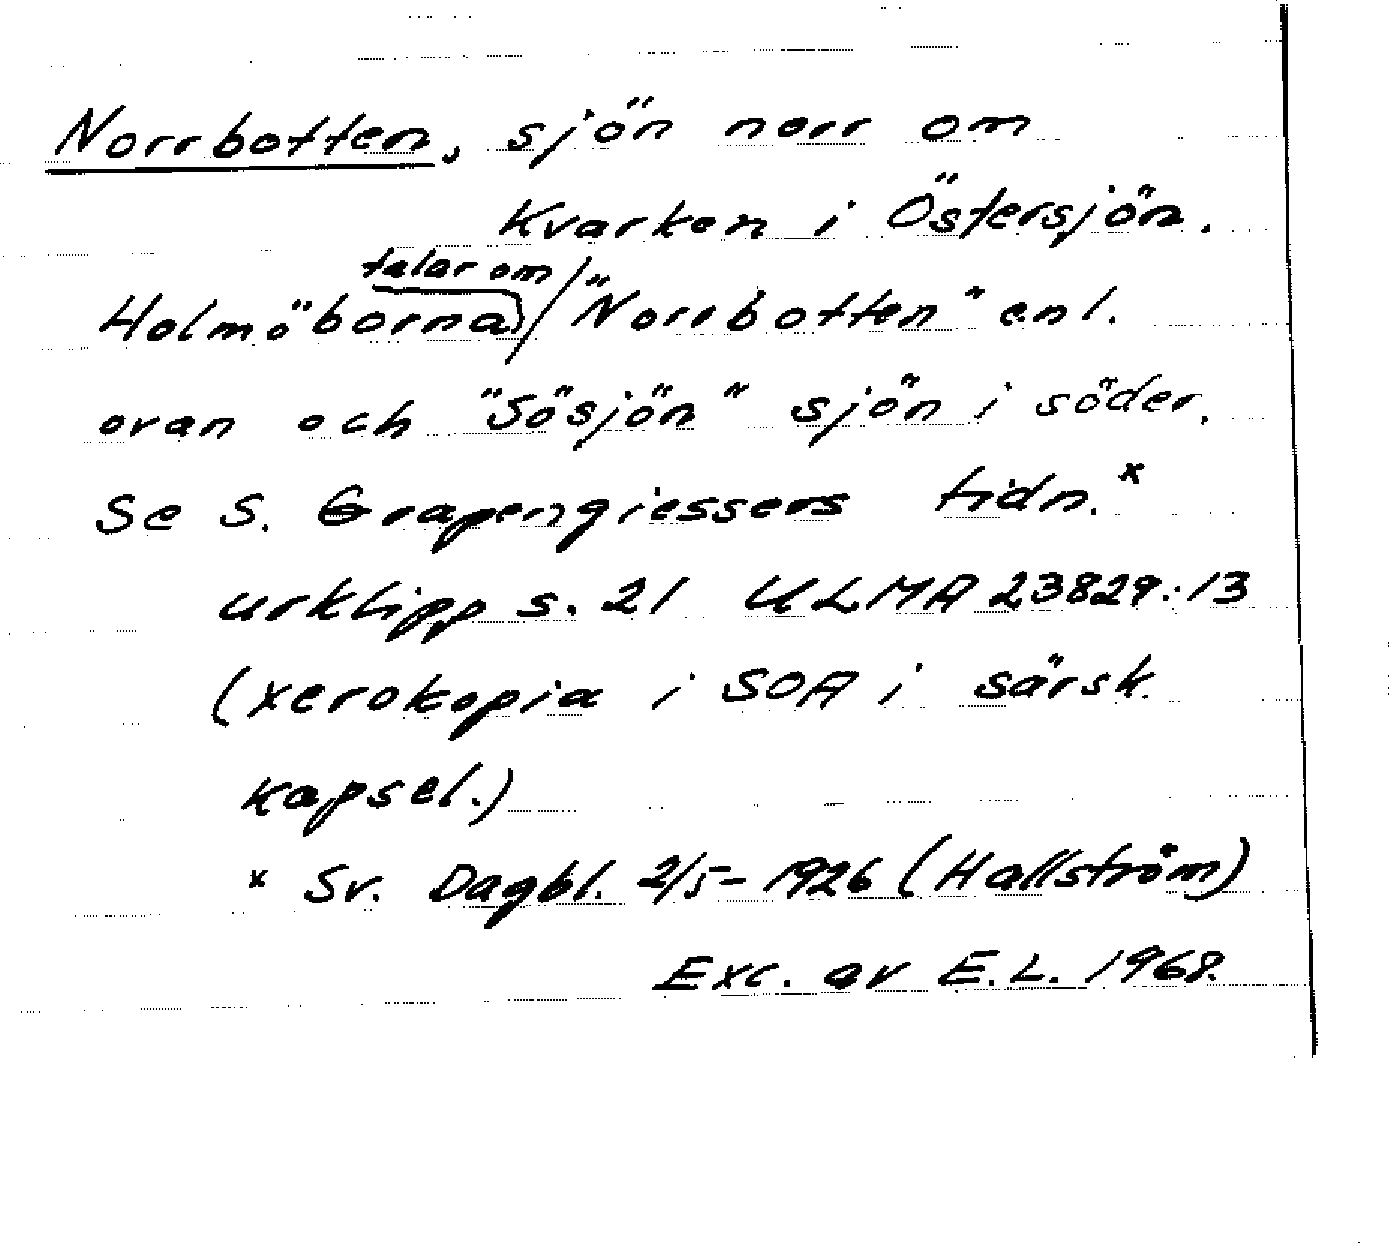 Norrbotten, sjön norr om
Kvarken i Östersjön.
Holmöborna talar om "Norrbotten" enl.
ovan och "Sösjön" sjön i söder.
Se S. Grapengiessers tidn.x
urklipp s. 21 ULMA 23829:13
(xerokopia i SOA i särsk.
kapsel.)
x Sv. Dagbl. 2/5-1926 (Hallström)
Exc. av E.L. 1968.